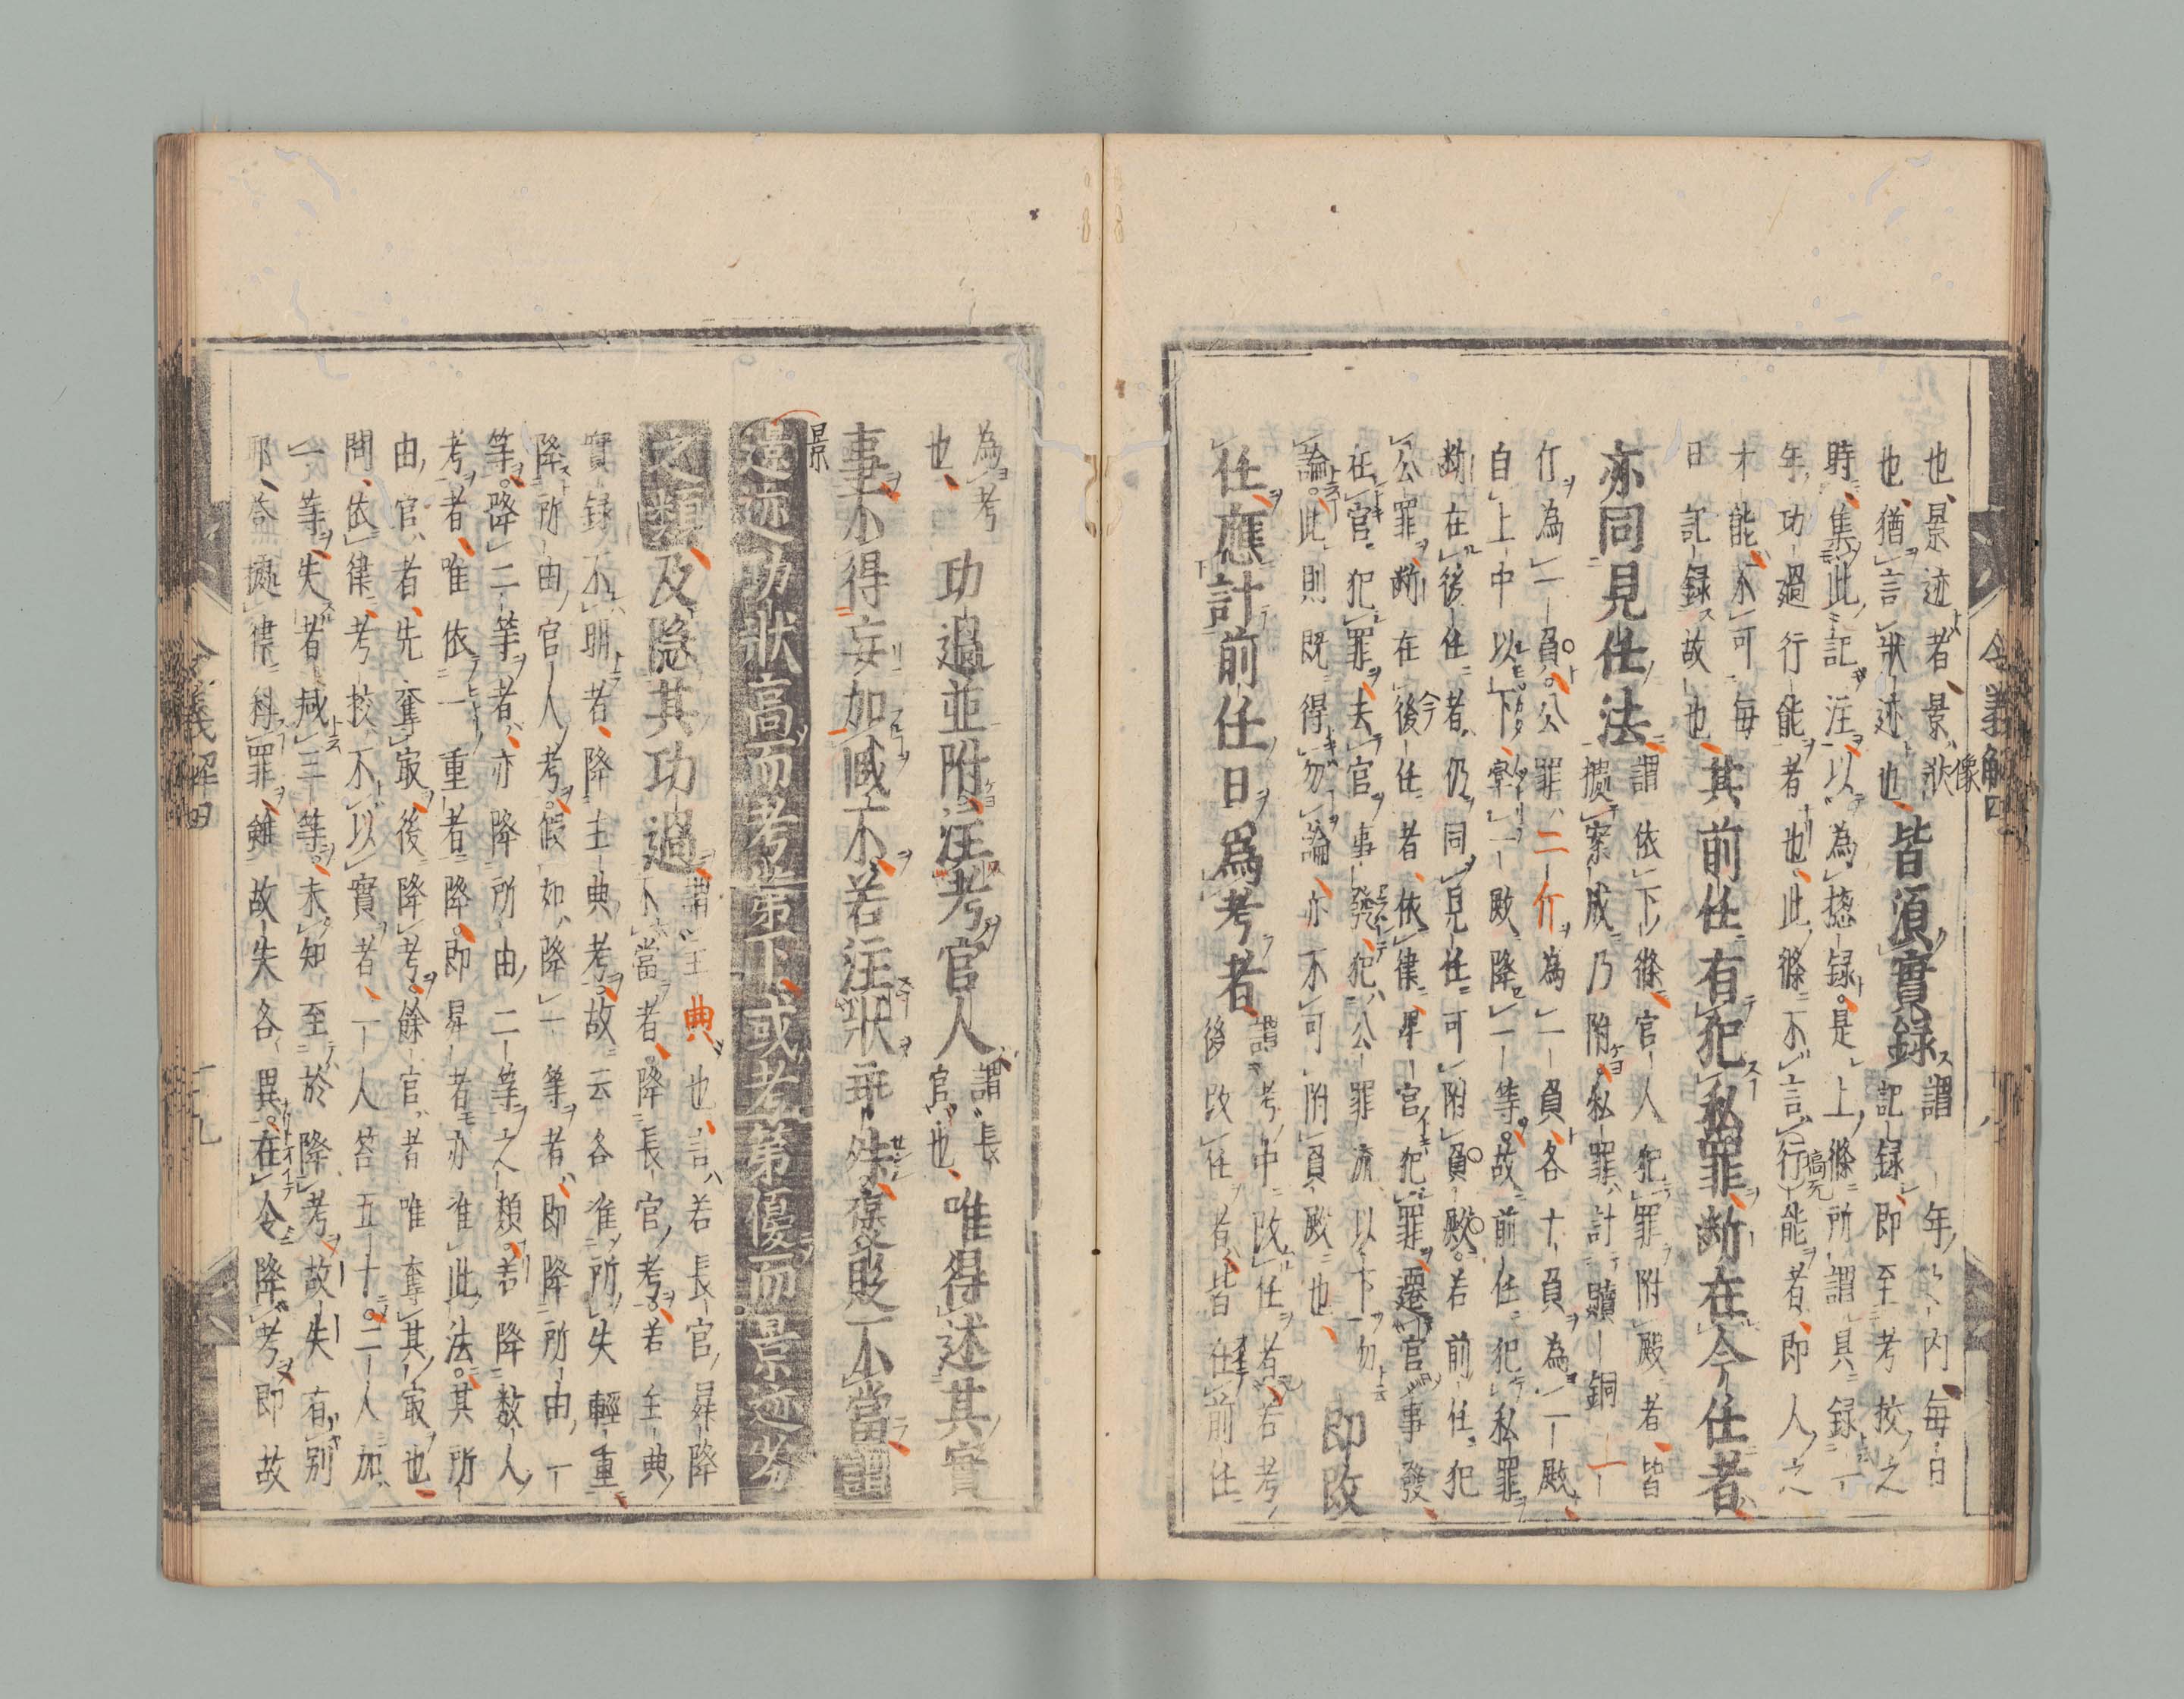 也、景迹者、景、狀像
也、猶言狀迹也、皆須實録
謂一年々内毎日
記録、即至考挍之
時、集此記注、以為惣録。是上條所謂具録一
年功過行能者也、此條不言行能者、即人之
才能、不可毎
日記録故也、
其前任有犯私罪断在今任者
亦同見任法
謂依下條官人犯罪附殿者、皆
據案成乃附私罪、計贖銅一
斤為一負。公罪、二斤為一負、各十負為一殿
自上中以下、率一殿降一等。故前任犯私罪
断在後任者、仍同見任可附負殿。若前任犯
公罪、断在後今任者、依律、卑官犯罪遷官事發
在官犯罪、去官事發、犯公罪流以下勿
論。此則既得勿論、亦不可附負殿也、
即改
任應計前任日爲考者
謂考中改任者、若考
後改任者、皆任前任
為考
也、
功過並附注考官人
謂長
官也、
唯得述其實
事不得妄加減不若注狀乖舛褒貶不當謂
景
遺迹功狀高而考第下、或考第優而景迹劣
之類及隠其功過
謂主典也、言若長官昇降
不當者、降長官考。若主典
實録不明者、降主典考。故云各准所失輕重
降所由官人考。假如降一等者、即降所由一
等。降二等者、亦降所由二等之類。若降数人
考者、唯依一重者降。即昇者亦准此法。其所
由官者、先奪最後降考。餘官者唯奪其最也、
問、依律、考挍不以實者、一人笞五十。二人加
一等、失者減三等。未知至於降考故失有別
耶、荅、據律科罪、雖故失各異。在令降考即故